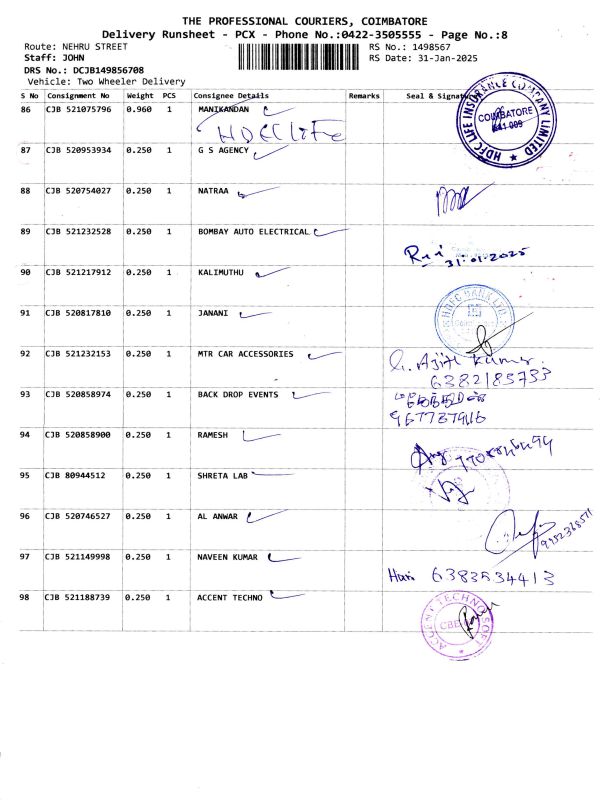 THE PROFESSIONAL COURIERS, COIMBATORE
Delivery Runsheet - PCX - Phone No.:0422-3505555 - Page No.:8
Route: NEHRU STREET RS No.: 1498567
Staff: JOHN RS Date: 31-Jan-2025
DRS No.: DCJB149856708
Vehicle: Two Wheeler Delivery
S No Consignment No Weight PCS Consignee Details Remarks Seal & Signature
86 CJB 521075796 0.960 1 MANIKANDAN
HDFC Life
HDFC LIFE INSURANCE COMPANY LIMITED
COIMBATORE
641 009
87 CJB 520953934 0.250 1 G S AGENCY
88 CJB 520754027 0.250 1 NATRAA
89 CJB 521232528 0.250 1 BOMBAY AUTO ELECTRICAL
31.01.2025
90 CJB 521217912 0.250 1 KALIMUTHU
91 CJB 520817810 0.250 1 JANANI
HDFC BANK LTD.
92 CJB 521232153 0.250 1 MTR CAR ACCESSORIES
Ajith Kumar.
6382185733
93 CJB 520858974 0.250 1 BACK DROP EVENTS
94 CJB 520858900 0.250 1 RAMESH
95 CJB 80944512 0.250 1 SHRETA LAB
96 CJB 520746527 0.250 1 AL ANWAR
97 CJB 521149998 0.250 1 NAVEEN KUMAR
Hari 6383534413
98 CJB 521188739 0.250 1 ACCENT TECHNO
ACCENT TECHNO SOFT
CBE